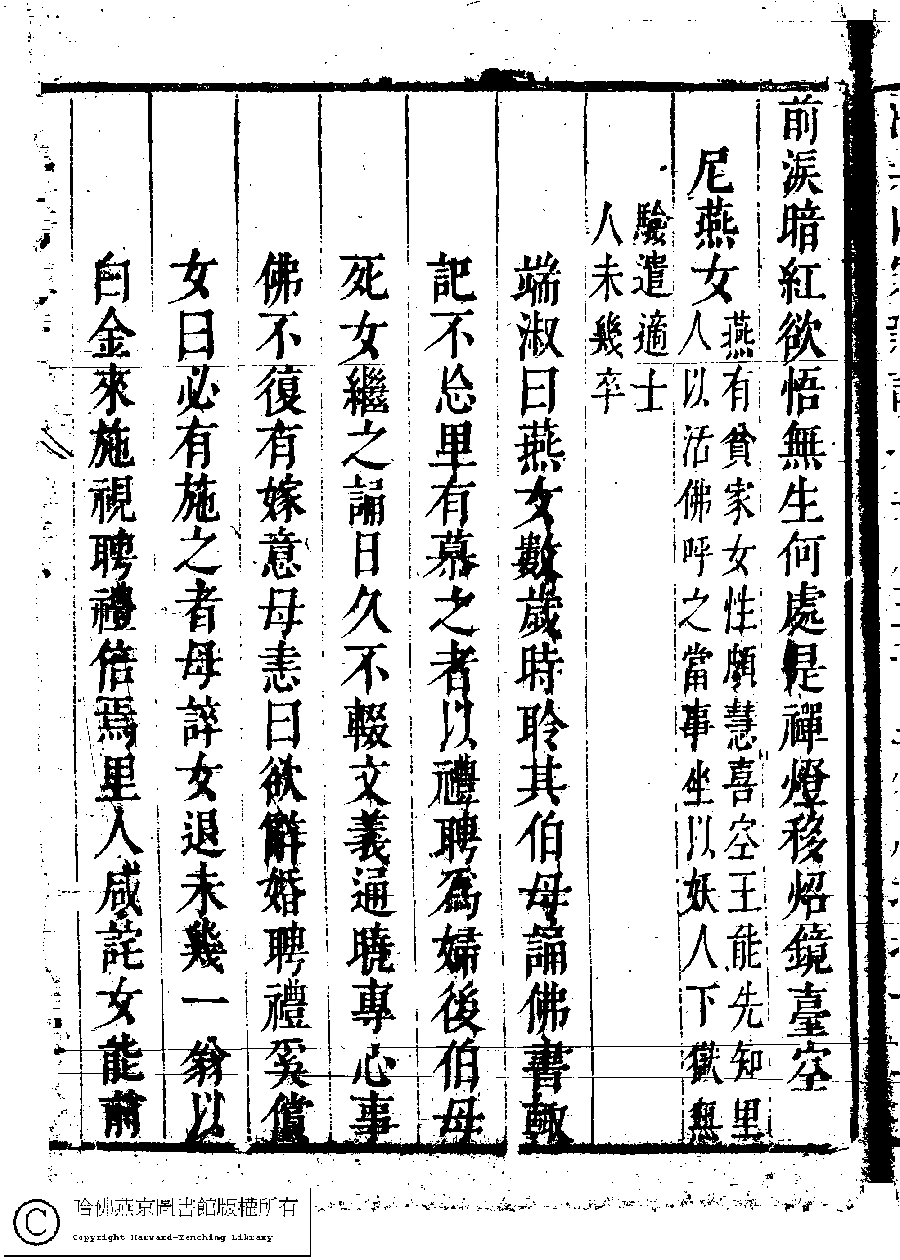 前淚暗紅欲悟無生何處是禪燈移炤鏡臺空
尼燕女
燕有貧家女性頗慧喜空王能先知里
人以活佛呼之當事坐以妖人下獄無
驗遣適士
人未幾卒
端淑曰燕女數歲時聆其伯母誦佛書輒
記不忘里有慕之者以禮聘爲婦後伯母
死女繼之誦日久不輟文義通曉專心事
佛不復有嫁意母恚曰欲辭婚聘禮奚償
女曰必有施之者母誶女退未幾一翁以
白金來施視聘禮倍焉里人咸詫女能前
哈佛燕京圖書館版權所有
Copyright Harvard-Yenching Library